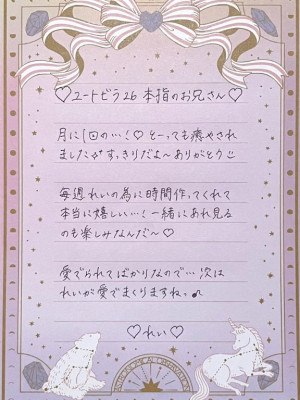 ♡ユートピラ26 本指のお兄さん♡
月に1回の…！♡とーっても癒やされ
ました✨すっきりだよ〜ありがとう☺
毎週れいの為に時間作ってくれて
本当に嬉しいい…！一緒にあれ見る
のも楽しみなんだ〜♡
愛でられてばかりなので…次は
れいが愛でまくりますね。♪
♡れい♡